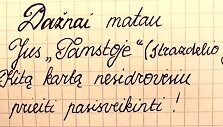 Dažnai matau
Jus „Tamstoje“ (strazdelio)
Kitą kartą nesidrovėsiu
prieiti pasisveikinti!